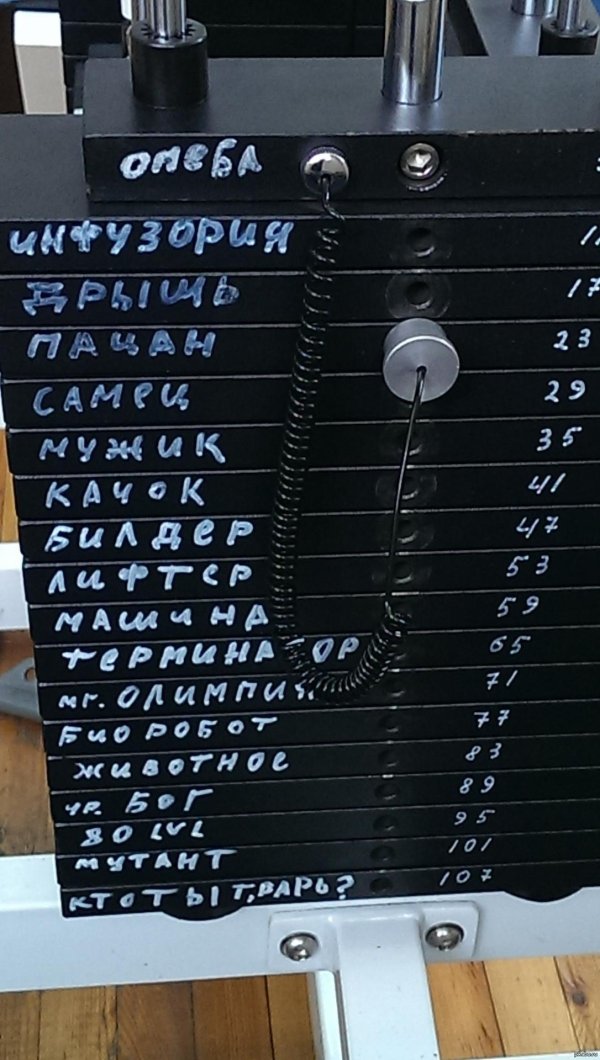 ОМЕБА
ИНФУЗОРИЯ 11
ДРЫЩЬ 17
ПАЦАН 23
САМЕЦ 29
МУЖИК 35
КАЧОК 41
БИЛДЕР 47
ЛИФТЕР 53
МАШИНА 59
ТЕРМИНАТОР 65
мг. ОЛИМПИЯ 71
БИОРОБОТ 77
ЖИВОТНОЕ 83
УР. БОГ 89
80 LVL 95
МУТАНТ 101
КТО ТЫ Т,ВАРЬ? 107